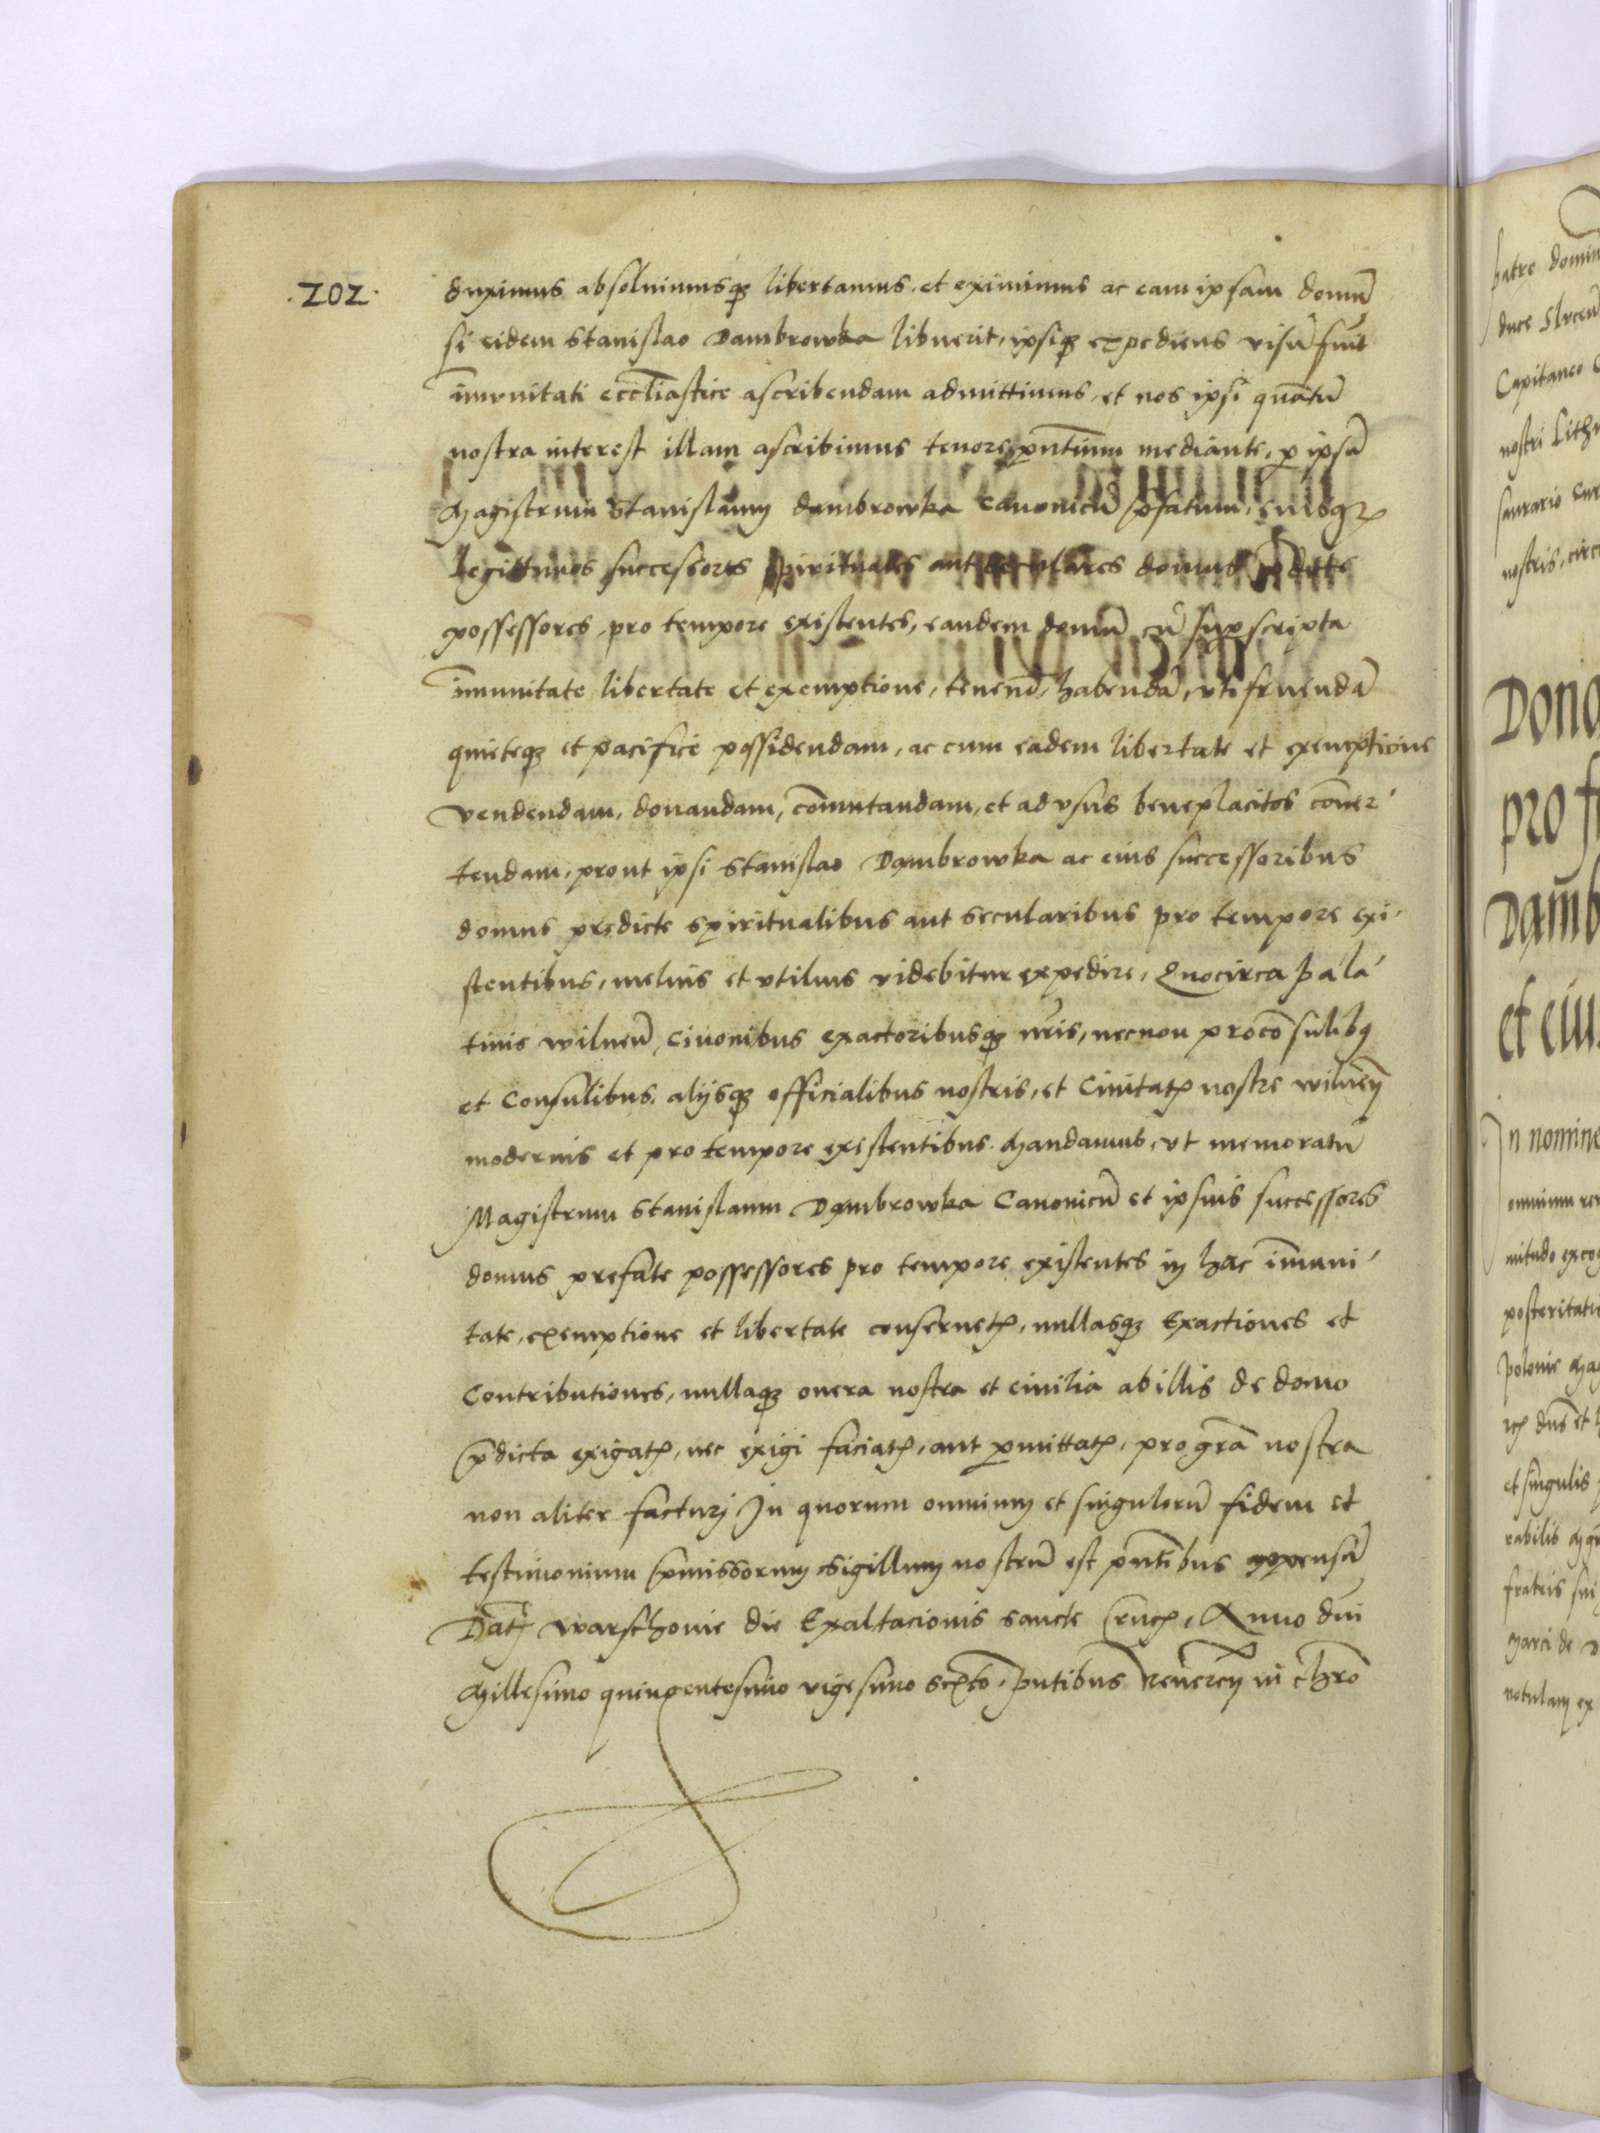 .202.
duximus absoluimusq3 libertamus. et eximimus ac eam ipsam domū
si eidem Stanislao Dambrowka libuerit, ipsiq3 expediens visū fuit
īmunitati ecclīastice ascribendam admittimus, et nos ipsi quātū
nostra interest illam ascribimus tenore pn̄tium mediante, p ipsū
Magistrum Stanislaum Dambrowka Canonicū p̄fatum, suosq3
legittimos successores spirituales aut seculares domus p̄dicte
possessores, pro tempore existentes, eandem domū cū supscripta
īmunitate libertate et exemptione, tenend̄, habendā, vtifruendā
quieteq3 et pacifice possidendam, ac cum eadem libertate et exemptione
vendendam, donandam, com̄utandam, et ad vsus beneplacitos conuer-
tendam, prout ipsi Stanislao Dambrowka ac eius successoribus
domus predicte spiritualibus aut secularibus pro tempore exi-
stentibus, melius et vtilius videbitur expedire, Quocirca pala-
tinis wilnen̄, Ciuonibus exactoribusq3 nr̄is, necnon procōsulibq
et Consulibus, alijsq3 officialibus nostris, et Ciuitatꝭ nostre wilnen̄
modernis et pro tempore existentibus. Mandamus, vt memoratū
Magistrum Stanislaum Dambrowka Canonicū et ipsius successores
domus prefate possessores pro tempore existentes in hac īmuni-
tate, exemptione et libertate conseruetꝭ, nullasq3 Exactiones et
Contributiones, nullaq3 onera nostra et ciuilia ab illis de domo
p̄dicta exigatꝭ, nec exigi faciatꝭ, aut pmittatꝭ, pro gr̄a nostra
non aliter facturi In quorum omnium et singulorū fidem et
testimonium p̄missorum Sigillum nostrū est pn̄tibus appensū
Dat̄ Warschouie die Exaltacionis sancte Crucꝭ, Anno dn̄i
Millesimo quingentesimo vigesimo sexto. Pn̄tibus Reueren̄ in chr̄o
patre domin
duce Slucen̄
Capitaneo
nostri Lithu
nostris, circ
Dono
pro f
Damb
et eiu
In nomine
omnium rer
posteritati
polonie Mag
et singulis
fratris sui
Marci de D
notulam ex